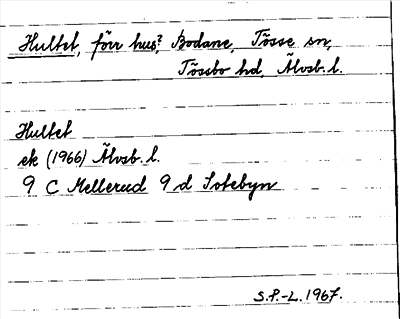 Hultet, förr hus? Bodane, Tösse sn,
Tössbo hd, Älvsb. l.
Hultet
ek (1966) Älvsb. l.
9 C Mellerud 9 d Sotebyn
S.P.-L. 1967.